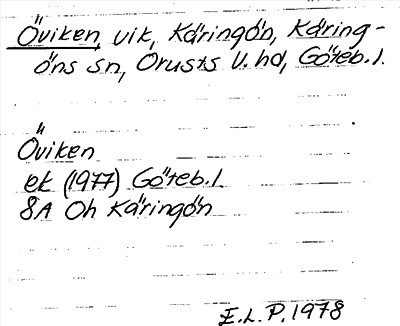 Öviken, vik, Käringön, Käring-
öns sn, Orusts V. hd, Göteb. l.
Öviken
ek (1977) Göteb. l.
8A Oh Käringön
E.L.P. 1978